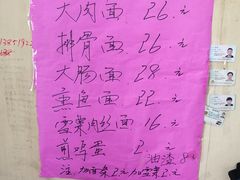 大肉面 26.元
排骨面 26.元
大肠面 28.元
熏鱼面 22.元
雪菜肉丝面 16.元
煎鸡蛋 2.元
油渣 8元
注.加面条2元加雪菜2元